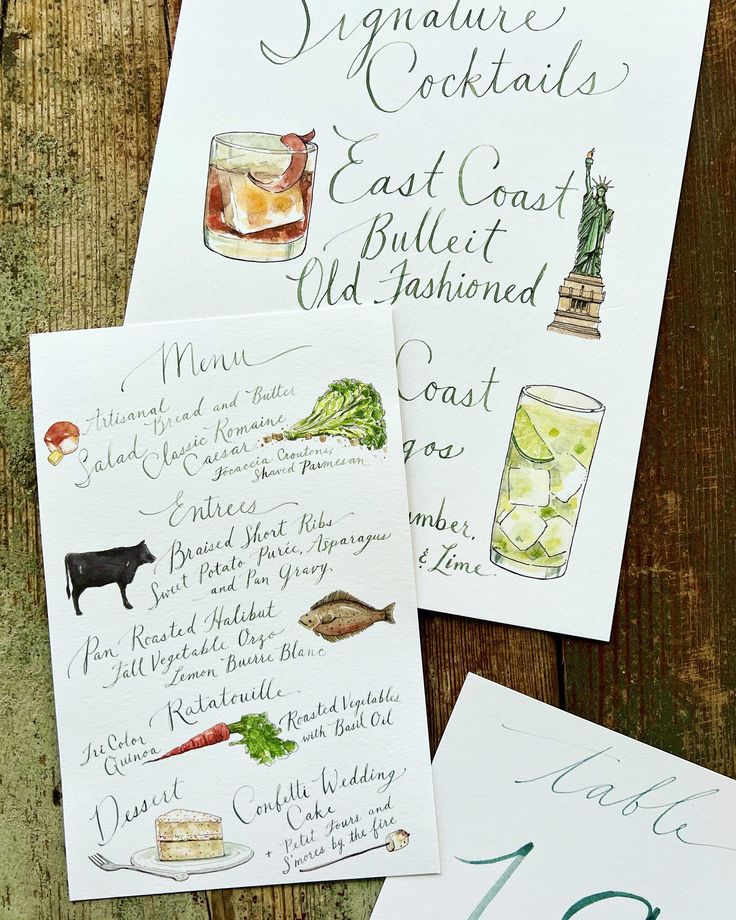 Signature
Cocktails
East Coast
Bulleit
Old Fashioned
Coast
gos
umber,
& Lime
Menu
Artisanal
Bread and Butter
Salad Classic Romaine
Caesar
Focaccia Croutons,
Shaved Parmesan
Entrees
Braised Short Ribs
Sweet Potato Purée, Asparagus
and Pan Gravy.
Pan Roasted Halibut
Fall Vegetable Orzo
Lemon Buerre Blanc
Ratatouille
Tri Color
Quinoa
Roasted Vegetables
with Basil Oil
Dessert
Confetti Wedding
Cake
+ Petit Fours and
S'mores by the fire
table